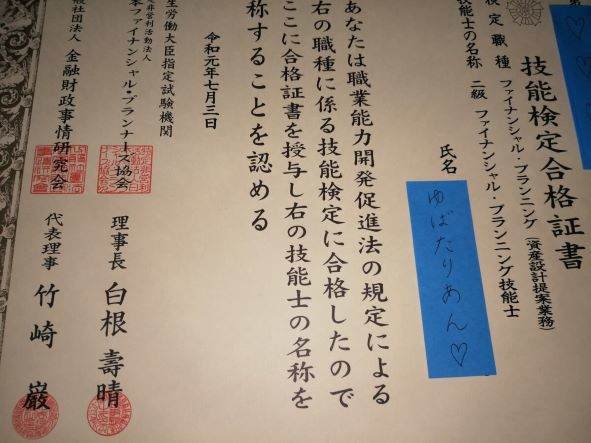 第
技能検定合格証書
検定職種 ファイナンシャル・プランニング(資産設計提案業務)
技能士の名称 二級 ファイナンシャル・プランニング技能士
氏名 ゆばたりあん♡
あなたは職業能力開発促進法の規定による
右の職種に係る技能検定に合格したので
ここに合格証書を授与し右の技能士の名称を
称することを認める
令和元年七月三日
生労働大臣指定試験機関
定非営利活動法人
本ファイナンシャル・プランナーズ協会 理事長 白根壽晴
般社団法人 金融財政事情研究会 代表理事 竹崎巌